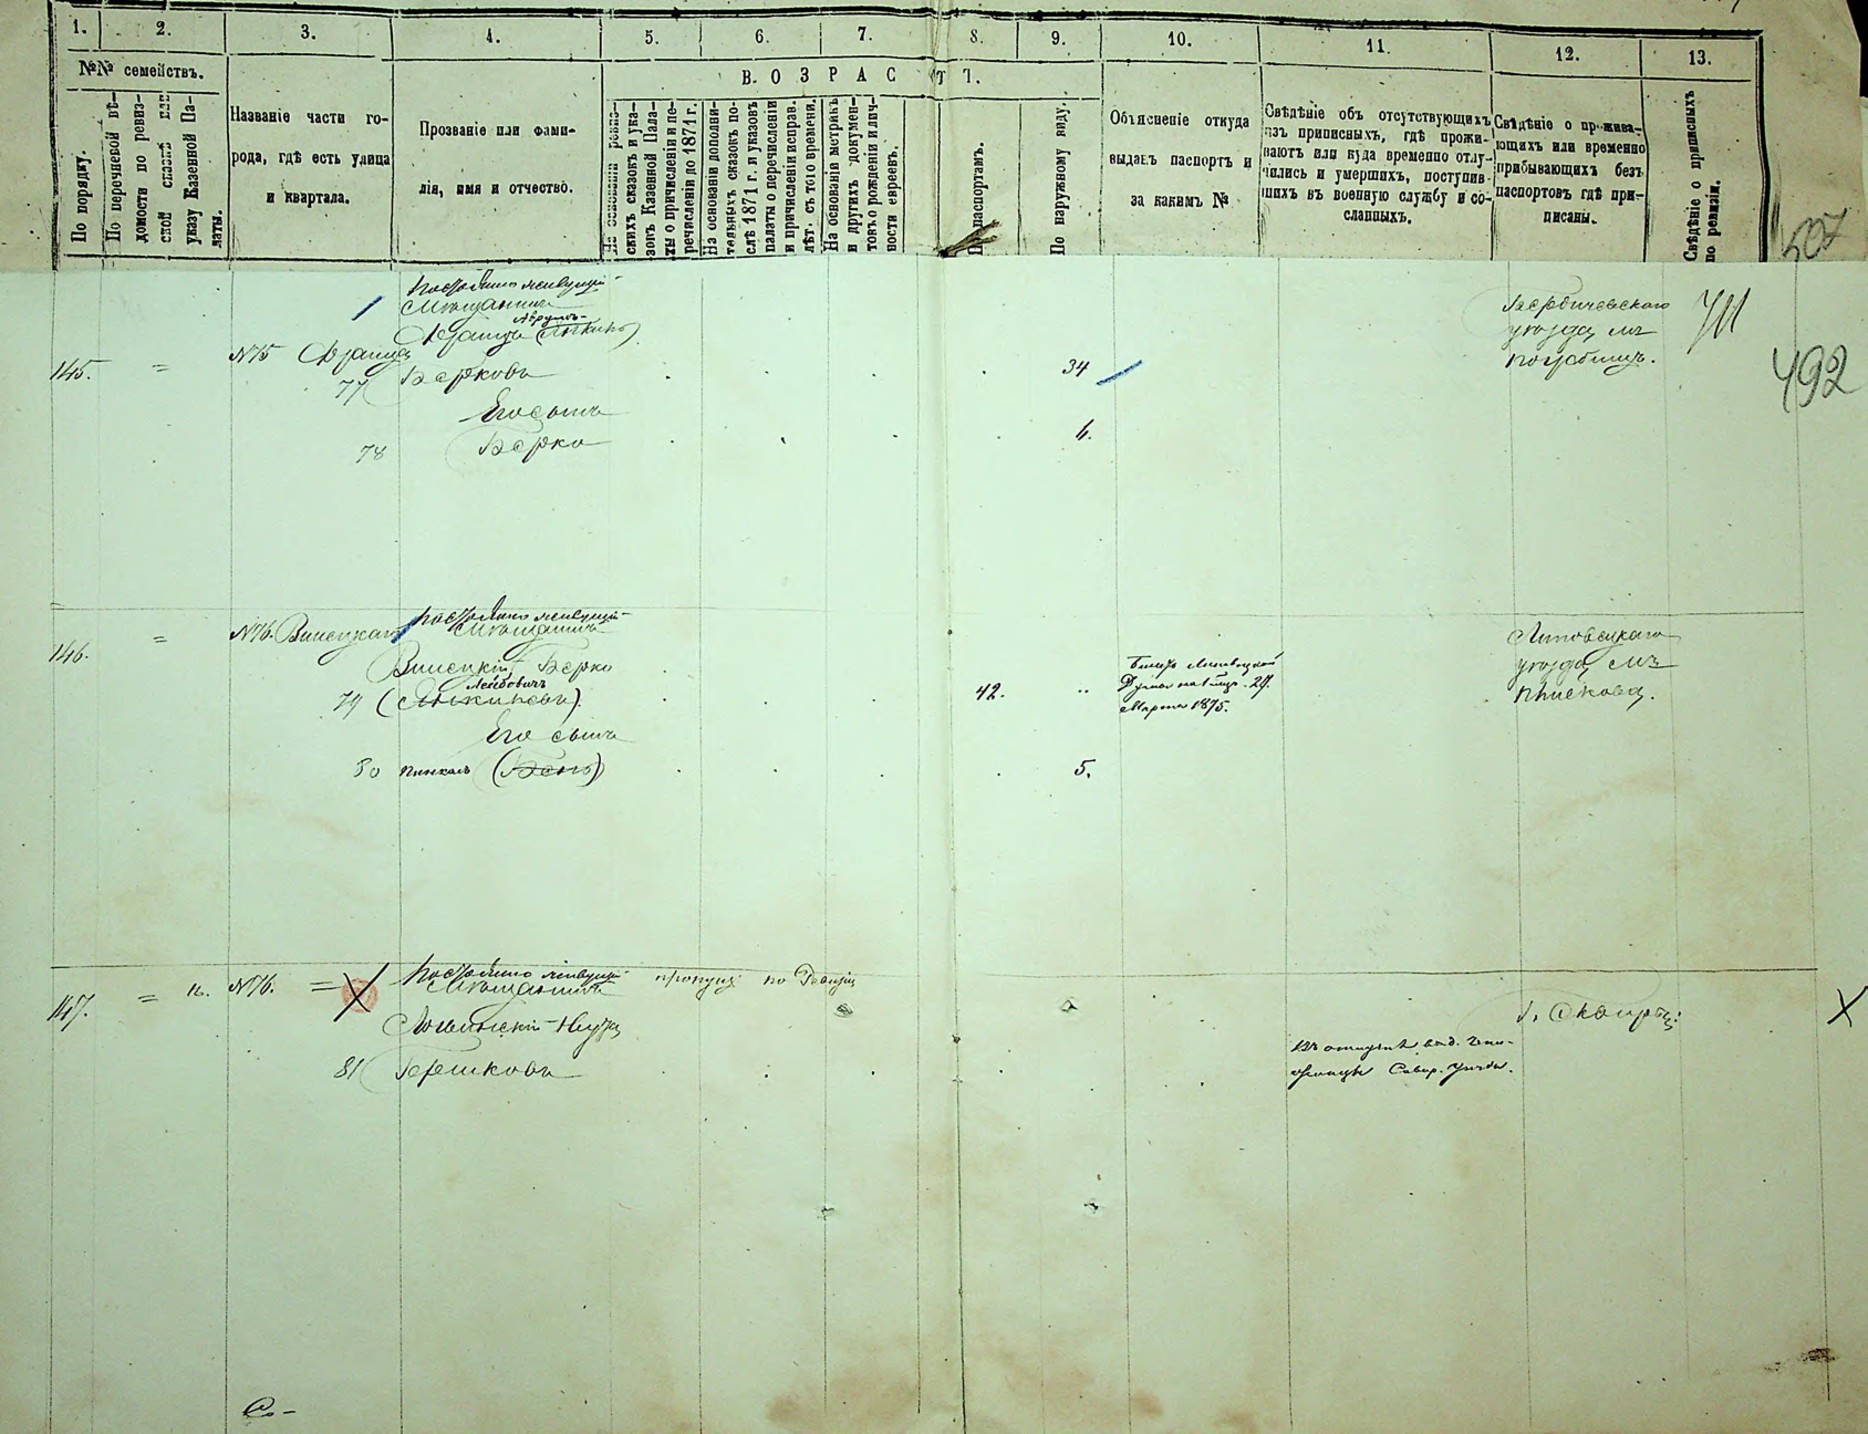 1. 2. 3. 4. 5. 6. 7. 8. 9. 10. 11. 12. 13.
№№ семействъ.
В О З Р А С Т Ъ.
По порядку.
По перечневой вѣ-
домости по ревиз-
ской сказкѣ или
указу Казенной Па-
латы.
Названіе части го-
рода, гдѣ есть улица
и квартала.
Прозваніе или фами-
лія, имя и отчество.
На основаніи ревиз-
скихъ сказокъ и ука-
зокъ Казенной Пала-
ты о причисленіи и пе-
речисленіи до 1871 г.
На основаніи дополни-
тельныхъ сказокъ по-
слѣ 1871 г. и указовъ
палаты о перечисленіи
и причисленіи исправ.
лѣт. съ того времени.
На основаніи метрикъ
и другихъ докумен-
товъ о рожденіи и лич-
ности евреевъ.
По паспортамъ.
По наружному виду.
Объясненіе откуда
выданъ паспортъ и
за какимъ №
Свѣдѣніе объ отсутствующихъ
изъ приписныхъ, гдѣ прожи-
ваютъ или куда временно отлу-
чились и умершихъ, поступив-
шихъ въ военную службу и со-
сланныхъ.
Свѣдѣніе о прожива-
ющихъ или временно
прибывающихъ безъ
паспортовъ гдѣ при-
писаны.
Свѣдѣніе о приписныхъ
по ревизіи.
507
492
Постоянно живущій
Мѣщанинъ
Аврумъ-
145. = №75
77 Берковъ 34
Его сынъ
78 Берко 4.
Бердичевскаго
уѣзда м.
Погребищъ.
Постоянно живущій
146. = №76. Мѣщанинъ
Берко
Лейбовичъ
79 42.
Его сынъ
80 Пинхасъ (Бень) 5.
Марта 1875.
Липовецкаго
уѣзда м.
Пискова.
Постоянно живущій
147. = №76. = Мѣщанинъ
81 Гершковъ
г. Сквиры: